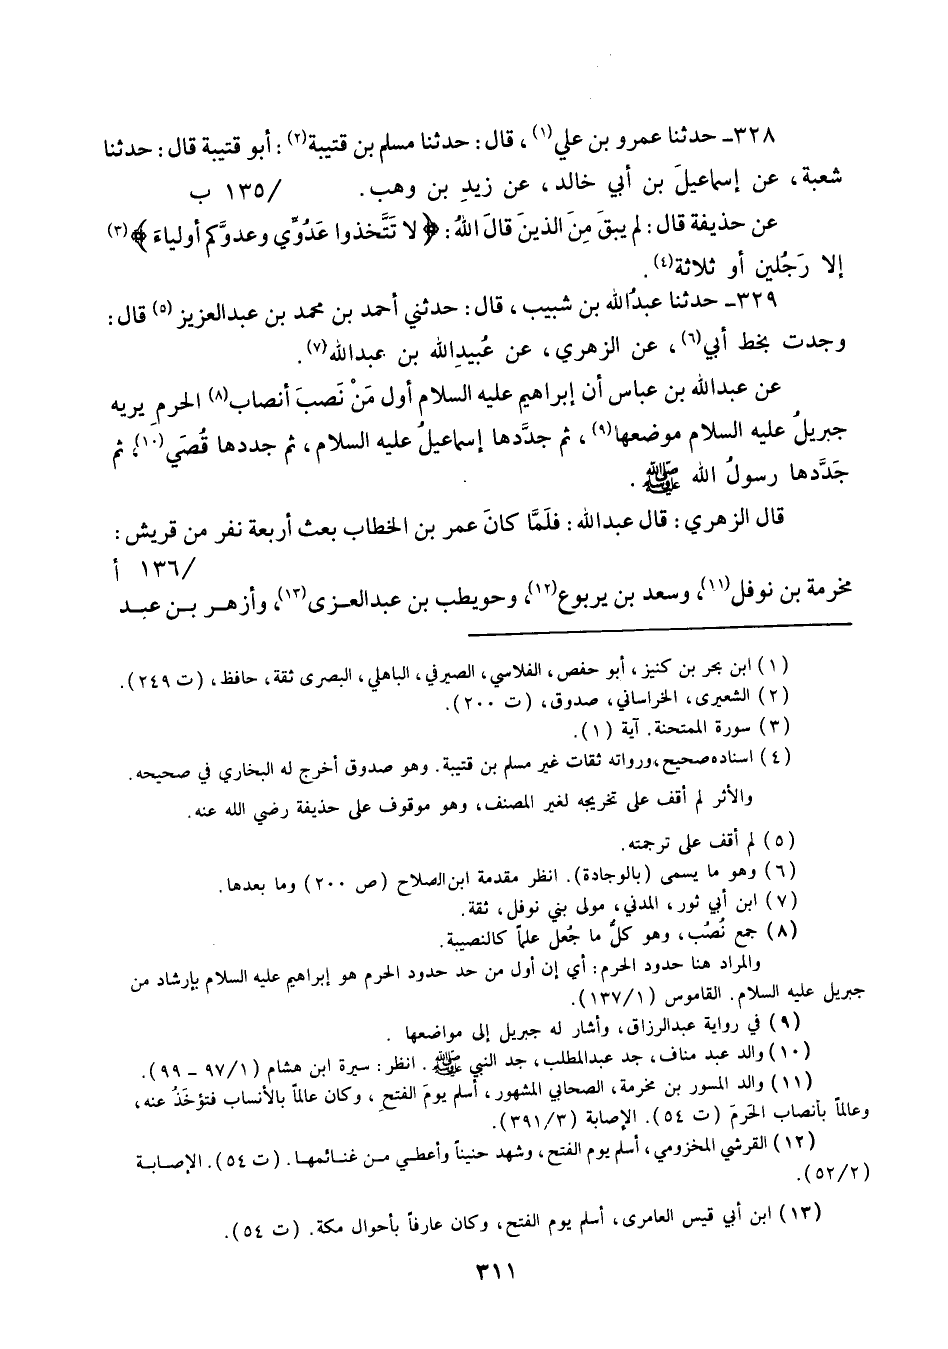 ٣٢٨ـ حدثنا عمرو بن علي(١)، قال: حدثنا مسلم بن قتيبة(٢): أبو قتيبة قال: حدثنا
شعبة، عن إسماعيلَ بن أبي خالد، عن زيدِ بن وهب. /١٣٥ ب
عن حذيفة قال: لم يبقَ مِنَ الذينَ قالَ اللهُ: ﴿لا تَتَّخذوا عَدُوِّي وعدوَّكم أولياءَ﴾(٣)
إلا رَجُلين أو ثلاثة(٤).
٣٢٩ـ حدثنا عبدُالله بن شبيب، قال: حدثني أحمد بن محمد بن عبدالعزيز(٥) قال:
وجدت بخط أبي(٦)، عن الزهري، عن عُبيدِالله بن عبدالله(٧).
عن عبدالله بن عباس أن إبراهيم عليه السلام أول مَنْ نَصبَ أنصاب(٨) الحرمِ يريه
جبريلُ عليه السلام موضعها(٩)، ثم جدَّدها إسماعيلُ عليه السلام، ثم جددها قُصَي(١٠)، ثم
جَدَّدها رسولُ الله ﷺ.
قال الزهري: قال عبدالله: فلَمَّا كانَ عمر بن الخطاب بعث أربعة نفر من قريش:
/١٣٦ أ
مخرمة بن نوفل(١١)، وسعد بن يربوع(١٢)، وحويطب بن عبدالعـزى(١٣)، وأزهـر بـن عبـد
(١) ابن بحر بن كنيز، أبو حفص، الفلاسي، الصيرفي، الباهلي، البصرى ثقة، حافظ، (ت ٢٤٩).
(٢) الشعيرى، الخراساني، صدوق، (ت ٢٠٠).
(٣) سورة الممتحنة. آية (١).
(٤) اسناده صحيح، ورواته ثقات غير مسلم بن قتيبة. وهو صدوق أخرج له البخاري في صحيحه.
والأثر لم أقف على تخريجه لغير المصنف، وهو موقوف على حذيفة رضي الله عنه.
(٥) لم أقف على ترجمته.
(٦) وهو ما يسمى (بالوجادة). انظر مقدمة ابن الصلاح (ص ٢٠٠) وما بعدها.
(٧) ابن أبي ثور، المدني، مولى بني نوفل، ثقة.
(٨) جمع نُصُب، وهو كلُّ ما جُعل علماً كالنصيبة.
والمراد هنا حدود الحرم: أي إن أول من حد حدود الحرم هو إبراهيم عليه السلام بإرشاد من
جبريل عليه السلام. القاموس (١/ ١٣٧).
(٩) في رواية عبدالرزاق، وأشار له جبريل إلى مواضعها .
(١٠) والد عبد مناف، جد عبدالمطلب، جد النبي ﷺ. انظر: سيرة ابن هشام (١/ ٩٧ - ٩٩).
(١١) والد المسور بن مخرمة، الصحابي المشهور، أسلم يومَ الفتحِ، وكان عالماً بالأنساب فتؤخَذُ عنه،
وعالماً بأنصاب الحَرمَ (ت ٥٤). الإصابة (٣/ ٣٩١).
(١٢) القرشي المخزومي، أسلم يوم الفتح، وشهد حنيناً وأعطي مـن غنـائمهـا. (ت ٥٤). الإصـابـة
(٢/ ٥٢).
(١٣) ابن أبي قيس العامرى، أسلم يوم الفتح، وكان عارفاً بأحوال مكة. (ت ٥٤).
٣١١